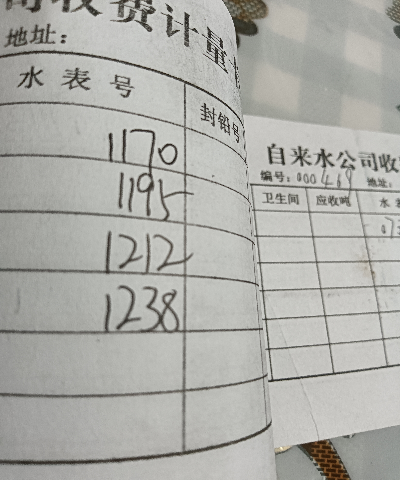 司收费计量
地址：
水表号
封铅号
1170
1195
1212
1238
自来水公司收
编号：000469 地址：
卫生间 应收吨 水
073